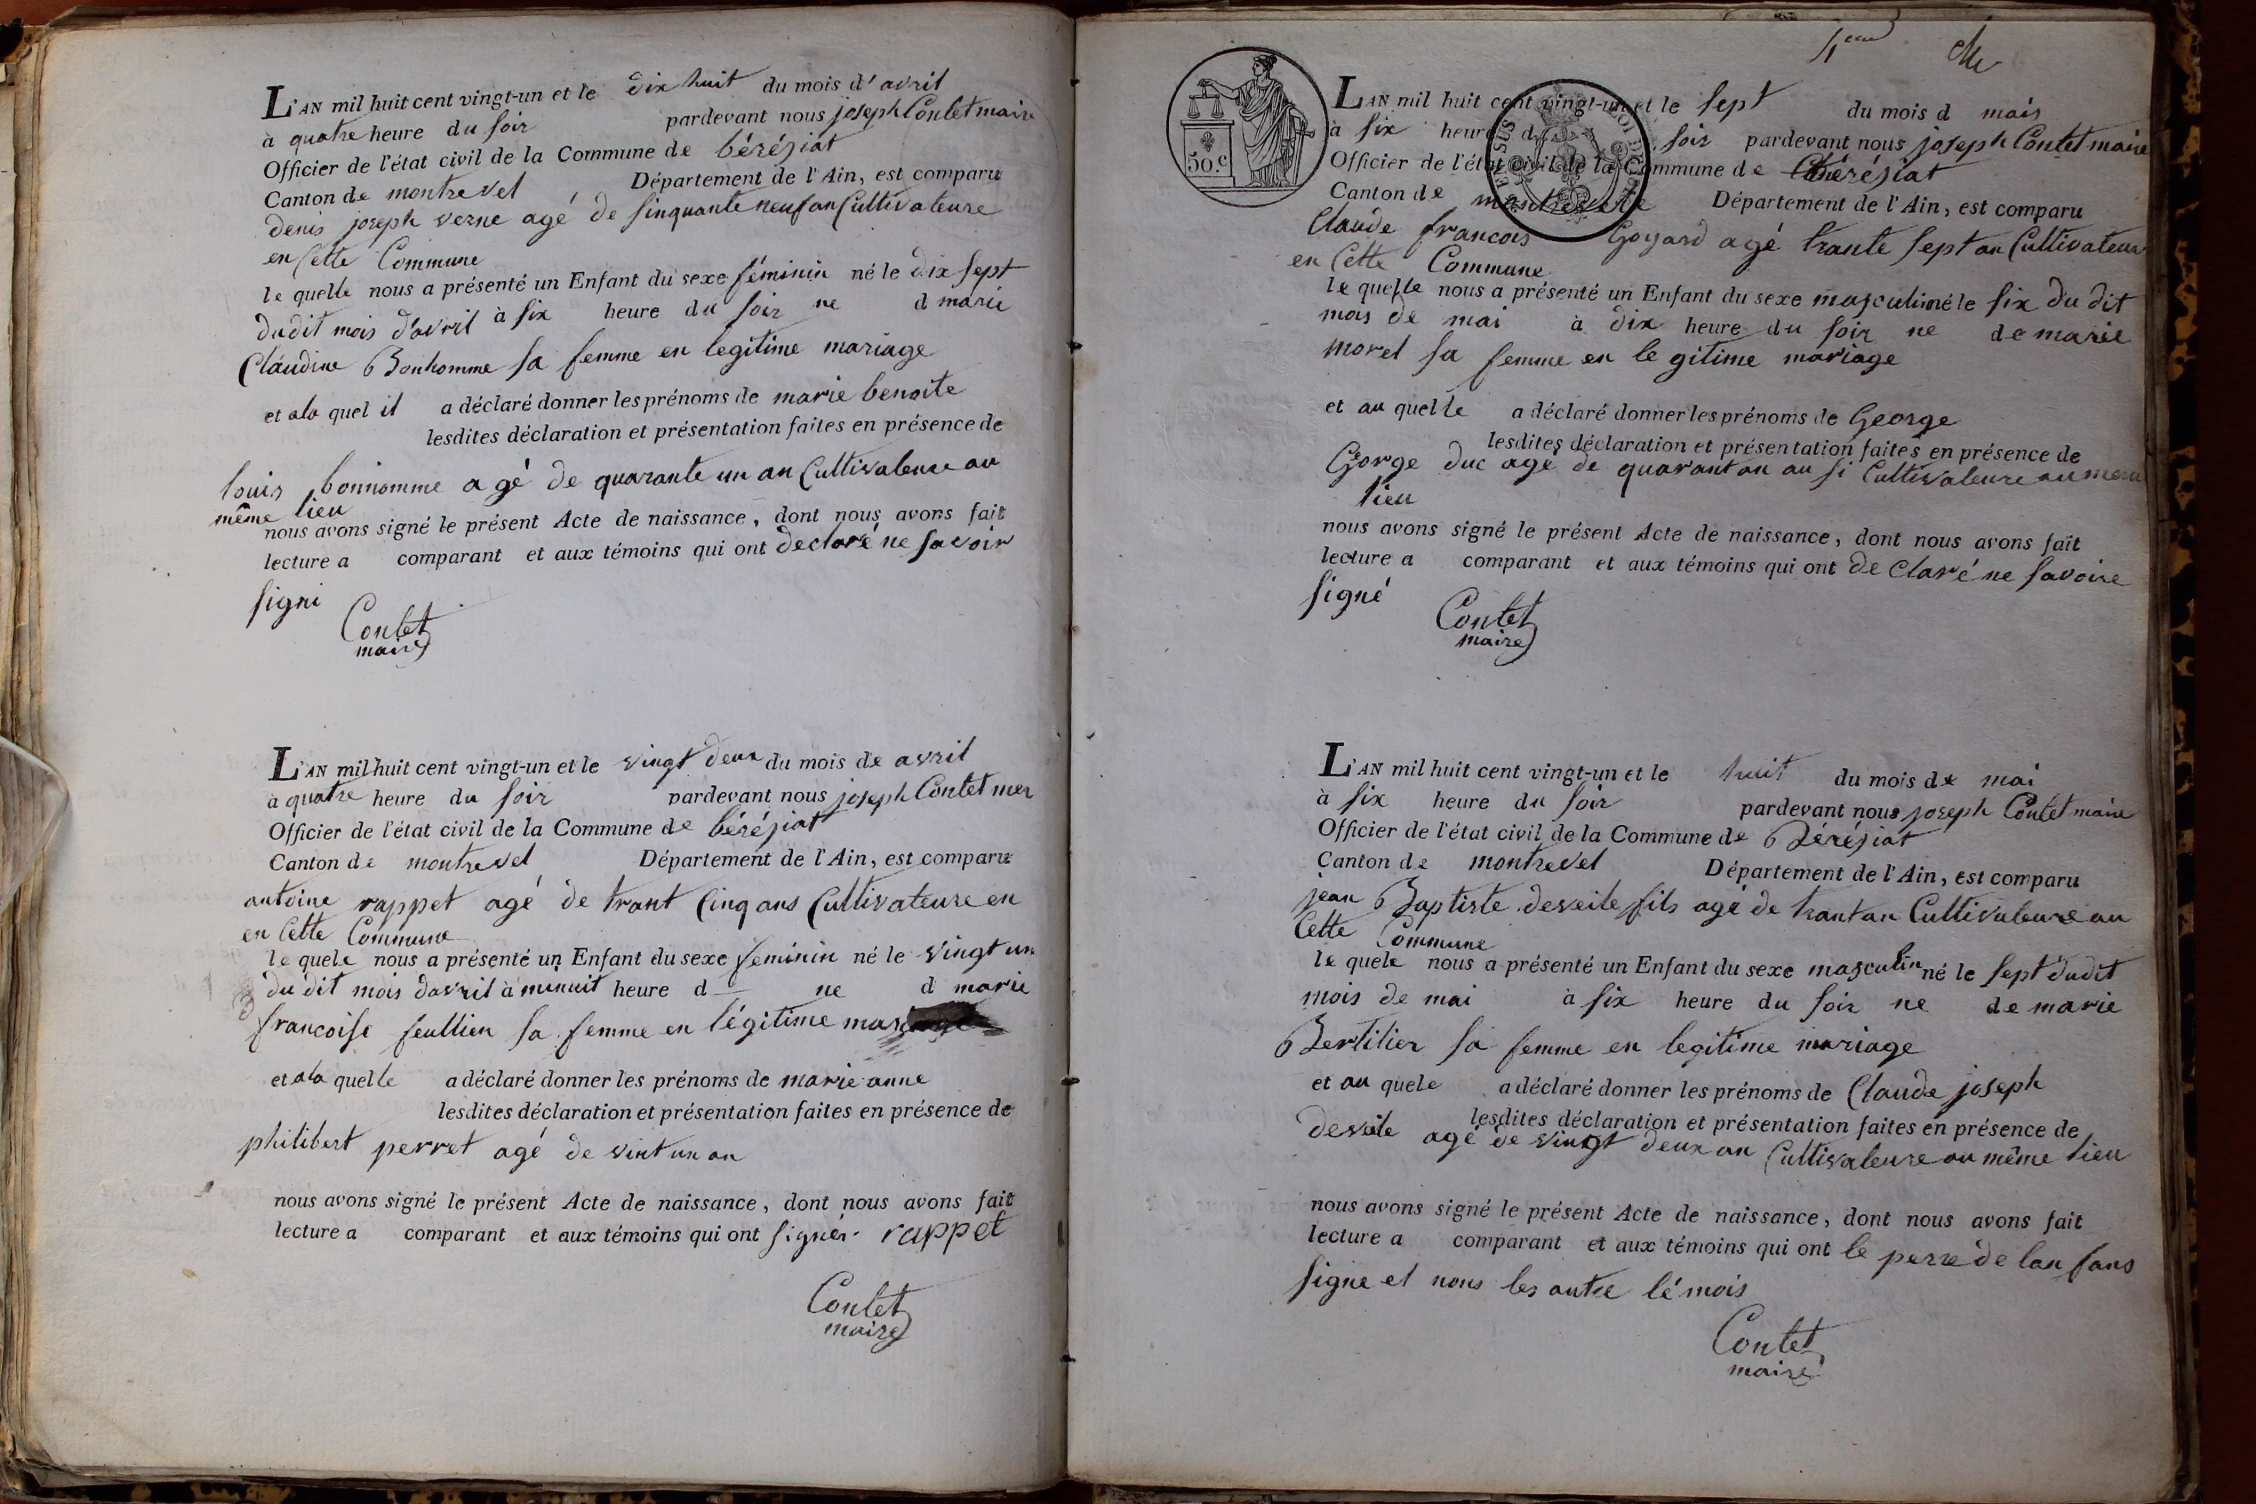 L'AN mil huit cent vingt-un et le dix huit du mois d'avril
à quatre heure du soir pardevant nous joseph Contet maire
Officier de l'état civil de la Commune de béréziat
Canton de montrevel Département de l'Ain, est comparu
denis joseph verne agé de sinquante neuf an Cultivateure
en Cette Commune
le quelle nous a présenté un Enfant du sexe féminin né le dix sept
du dit mois d'avril à six heure du soir ne d marie
Claudine Bonhomme sa femme en legitime mariage
et ala quel il a déclaré donner les prénoms de marie benoite
lesdites déclaration et présentation faites en présence de
louis bonnomme agé de quarante un an Cultivateure au
même lieu
nous avons signé le présent Acte de naissance, dont nous avons fait
lecture a comparant et aux témoins qui ont declaré ne savoir
signi
Contet
maire
L'AN mil huit cent vingt-un et le vingt deux du mois de avril
à quatre heure du soir pardevant nous joseph Contet mer
Officier de l'état civil de la Commune de béréziat
Canton de montrevel Département de l'Ain, est comparu
antoine rappet agé de trant Cinq ans Cultivateure en
en Cette Commune
le quele nous a présenté un Enfant du sexe feminin né le vingt un
du dit mois davril à minuit heure d ne d marie
francoise feullien sa femme en légitime mariage
et ala quelle a déclaré donner les prénoms de marie anne
lesdites déclaration et présentation faites en présence de
philibert perret agé de vint un an
nous avons signé le présent Acte de naissance, dont nous avons fait
lecture a comparant et aux témoins qui ont signér. rappet
Contet
maire
50.c
L'AN mil huit cent vingt-un et le sept du mois d mais
à six heure d soir pardevant nous joseph Contet maire
Officier de l'état civil de la Commune de béréziat
Canton de montrevele Département de l'Ain, est comparu
Claude francois Goyard agé trante sept an Cultivateur
en Cette Commune
le quelle nous a présenté un Enfant du sexe masculin né le six du dit
mois de mai à dix heure du soir ne de marie
morel sa femme en le gitime mariage
et au quelle a déclaré donner les prénoms de George
lesdites déclaration et présentation faites en présence de
George duc agé de quarant an au si Cultivateure au meme
lieu
nous avons signé le présent Acte de naissance, dont nous avons fait
lecture a comparant et aux témoins qui ont de Claré ne savoire
signé
Contet
maire
L'AN mil huit cent vingt-un et le huit du mois de mai
à six heure du soir pardevant nous joseph Contet maire
Officier de l'état civil de la Commune de Béréziat
Canton de montrevel Département de l'Ain, est comparu
jean Baptiste deveile fils agé de trant an Cultivateure au
Cette Commune
le quele nous a présenté un Enfant du sexe masculin né le sept dudit
mois de mai à six heure du soir ne de marie
Bertilier sa femme en legitime mariage
et au quele a déclaré donner les prénoms de Claude joseph
lesdites déclaration et présentation faites en présence de
deveile agé de vingt deux an Cultivateure au même lieu
nous avons signé le présent Acte de naissance, dont nous avons fait
lecture a comparant et aux témoins qui ont le perre de lan fans
signe et nons les autre lé mois
Contet
maire